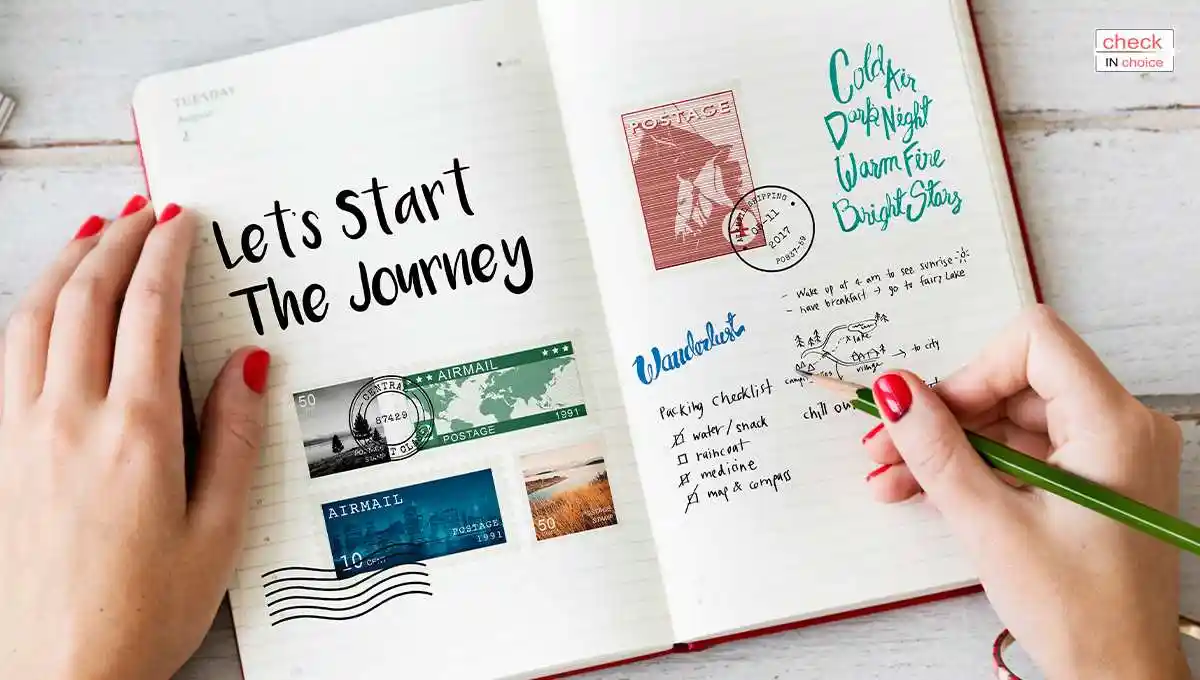 check
IN choice
TUESDAY
August
Let's Start
The Journey
50
CENTRAL
87429
AIRMAIL
POSTAGE
1991
AIRMAIL
POSTAGE
1991
10 CENT
50
POSTAGE
STAMP
POSTAGE
SHIPPING
2017
Cold Air
Dark Night
Warm Fire
Bright Stars
- Wake up at 4 am to see sunrise
- have breakfast → go to fairy Lake
x lake
village
→ to city
chill ou
Wanderlust
Packing checklist
water/snack
raincoat
medicine
map & compass